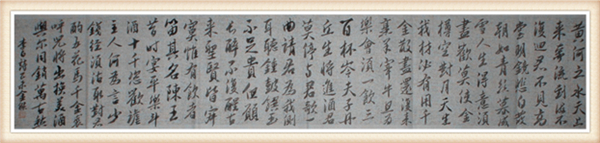 黄河之水天上
來奔流到海不
復迴君不見高
堂明鏡悲白髮
朝如青絲暮成
雪人生得意須
盡歡莫使金
樽空對月天生
我材必有用千
金散盡還復來
烹羊宰牛且為
樂會須一飲三
百杯岑夫子丹
丘生將進酒君
莫停與君歌一
曲請君為我側
耳聽鐘鼓饌玉
不足貴但願
長醉不復醒古
來聖賢皆寂
寞惟有飲者
留其名陳王
昔時宴平樂斗
酒十千恣歡謔
主人何為言少
錢徑須沽取對君
酌五花馬千金裘
呼兒將出換美酒
與爾同銷萬古愁
李白詩